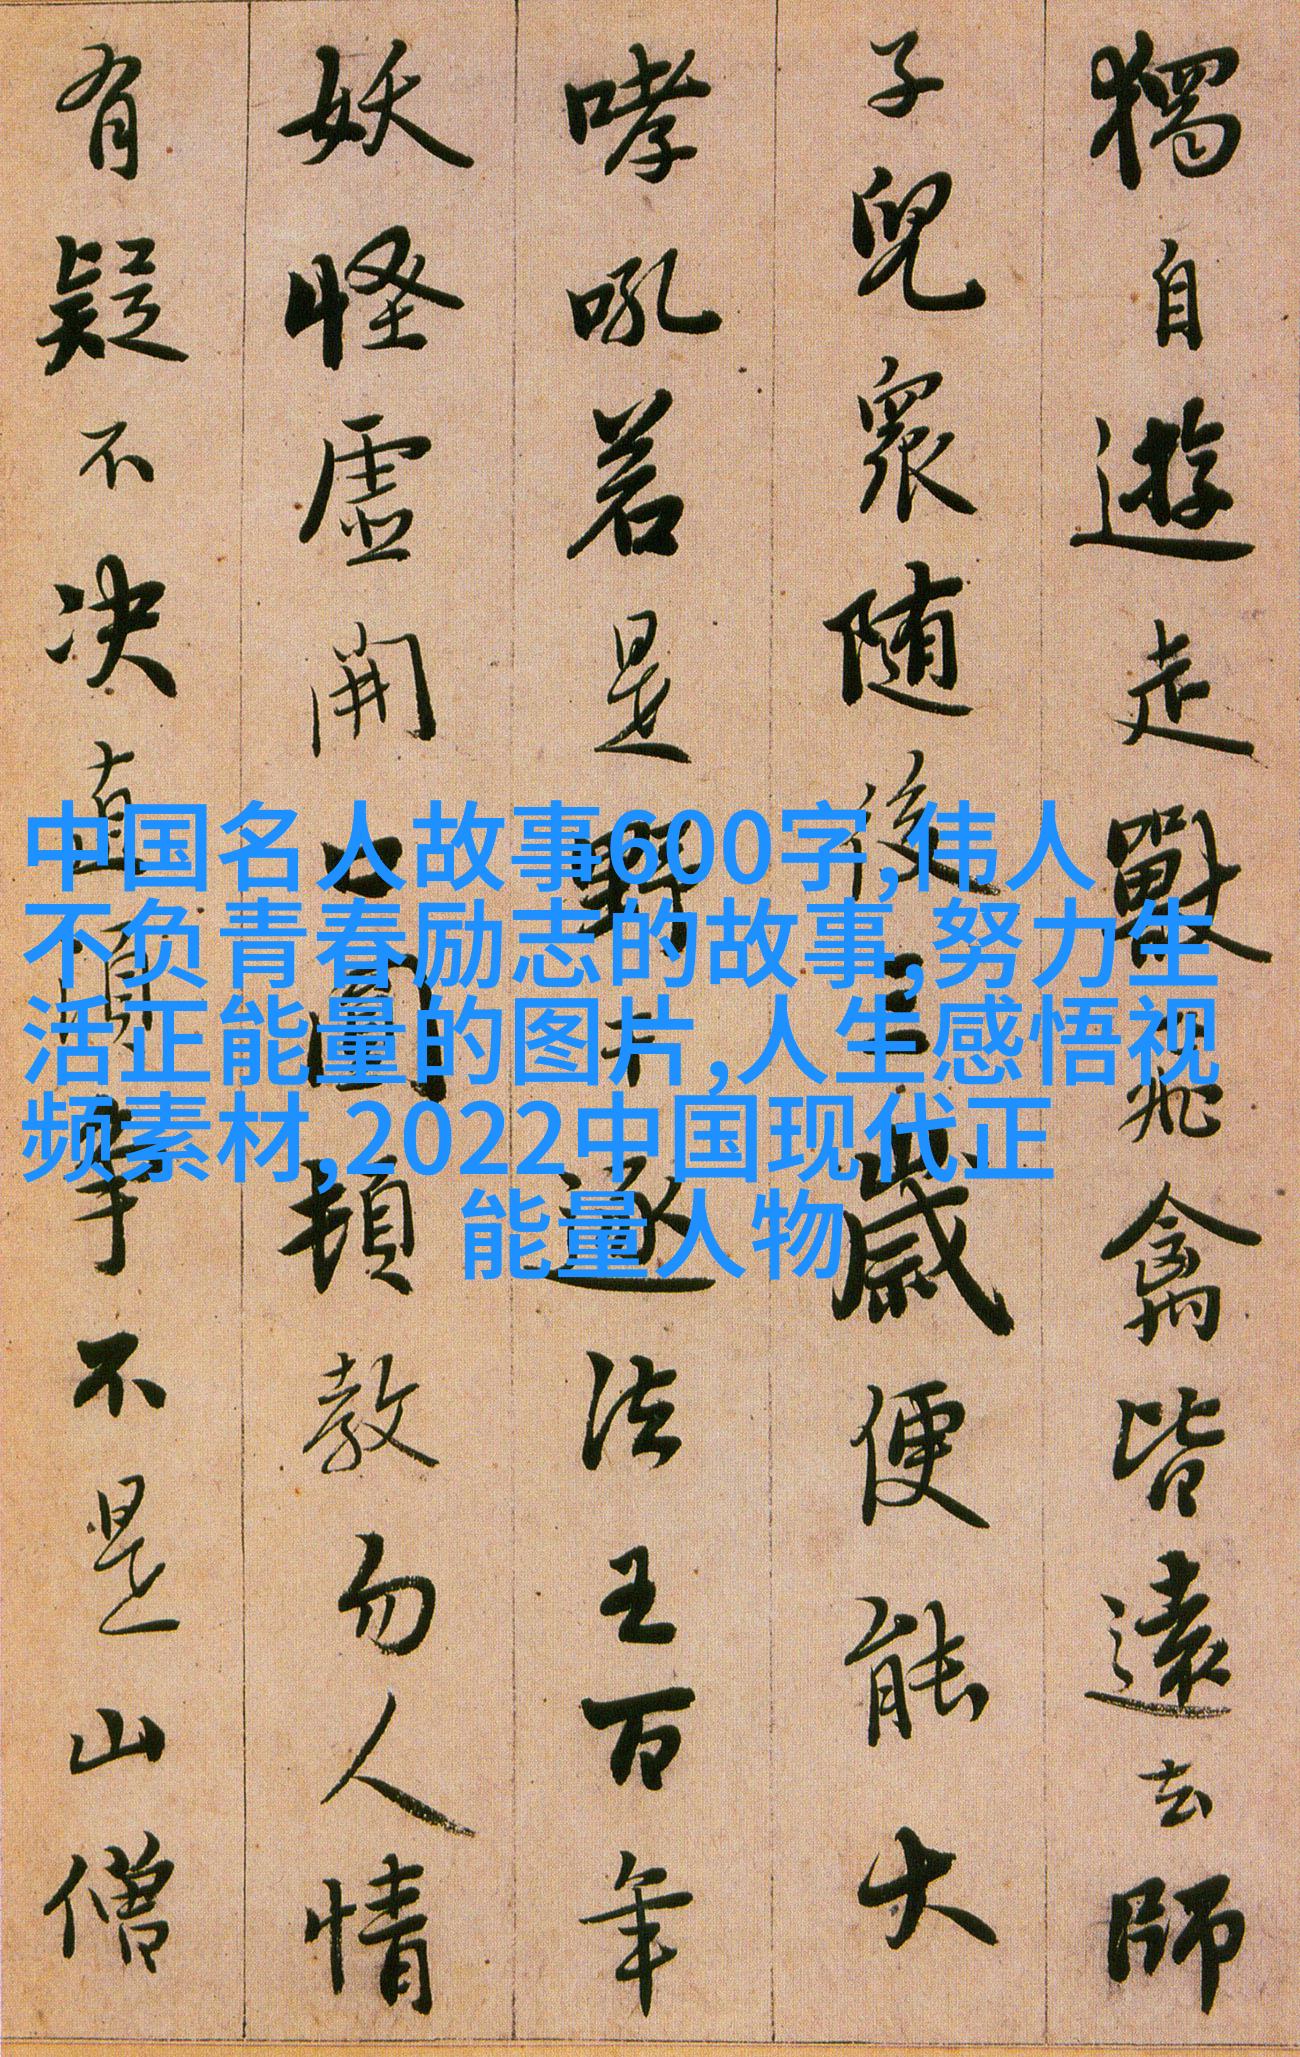 獨自遊走獸飛禽皆遠去師
子兒衆随後三歲便能大
哮吼若是野干逐法王百年
妖怪虚開口圓頓教勿人情
有疑不决直須爭不是山僧
中国名人故事600字,伟人
不负青春励志的故事,努力生
活正能量的图片,人生感悟视
频素材,2022中国现代正
能量人物